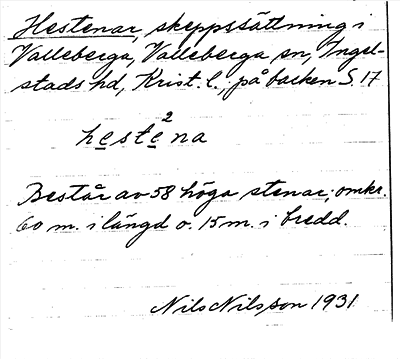 Hestenar, skeppssättning i
Valleberga, Valleberga sn, Ingel-
stads hd, Krist. l. på backen S. 17
hestena
2
Består av 58 höga stenar; omkr.
60 m. i längd o. 15 m. i bredd.
Nils Nilsson 1931